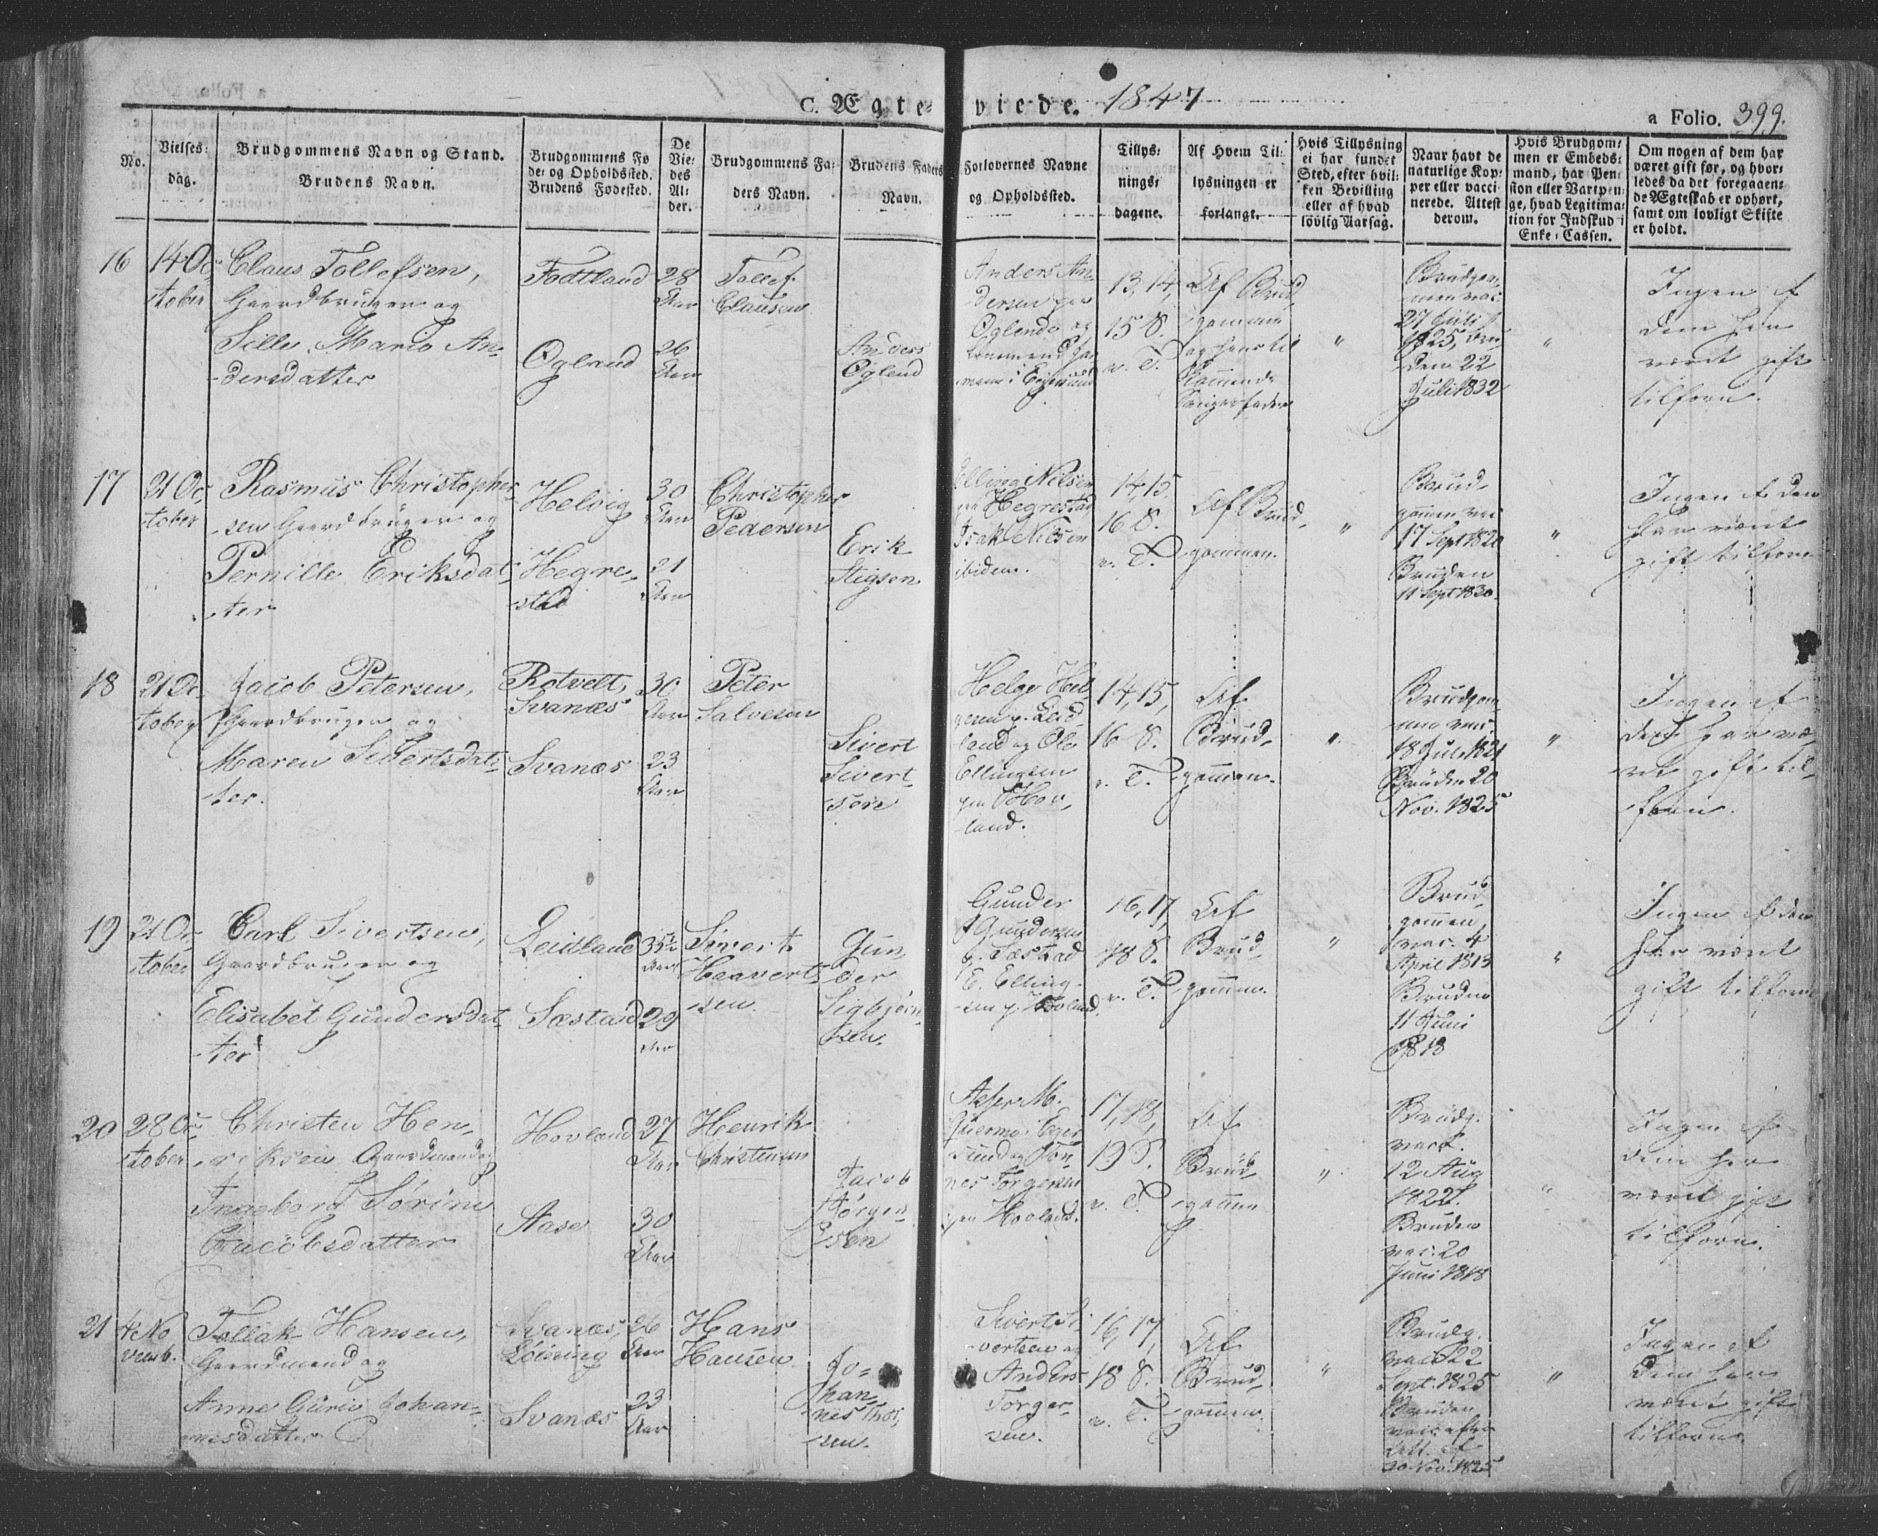 C. Ægte- viede. 1847
a Folio. 399.
No.
Vielses-
dag.
Brudgommens Navn og Stand.
Brudens Navn.
Brudgommens Fø
de- og Opholdsted.
Brudens Fødested.
De
Vie-
des
Al-
der.
Brudgommens Fa-
ders Navn.
Brudens Faders
Navn.
Forlovernes Navne
og Opholdsted.
Tillys-
nings-
dagene.
Af Hvem Til-
lysningen er
forlangt.
Hvis Tillysning
ei har fundet
Sted, efter hvil-
ken Bevilling
eller af hvad
lovlig Aarsag.
Naar havt de
naturlige Kop-
per eller vacci-
nerede. Attest
derom.
Hvis Brudgom-
men er Embeds-
mand, har Pen-
sion eller Vartpen-
ge, hvad Legitima-
tion for Indskud i
Enke-Cassen.
Om nogen af dem har
været gift før, og hvor-
ledes da det foregaaen-
de Ægteskab er ophørt,
samt om lovligt Skifte
er holdt.
16
14 Oc-
tober
Claus Tollefsen,
Gaardbruger og
Sille Marie An-
dersdatter
Fodtland
Ogland
28
Aar
26
Aar
Tollef
Clausen
Anders
Oglend
Anders An-
dersen
Oglende og
13, 14,
15 S.
e. T.
Af Brud-
gommen
Brudgom-
men vac.
27 Juli
1825,
den 22
Juli 1832
Ingen af
dem har
været gift
tilforn.
17
21 Oc-
tober
Rasmus Christopher-
sen Gaardbruger og
Pernille Eriksdat-
ter
Helvig
Hegre-
stad
30
Aar
21
Aar
Christopher
Pedersen
Erik
Stigsen
Elling Nilsen
Hegrestad
Isak Nilsen
ibidem.
14, 15
16 S.
e. T.
Af Brud-
gommen.
Brud-
gommen vac.
17 Sept 1820
Bruden
11 Sept 1830.
Ingen af dem
har været
gift tilforn
18
21 Oc-
tober
Jacob Petersen,
Gaardbruger og
Maren Sivertsdat-
ter.
Rotvelt,
Svanæs
Svanæs
30
Aar
23
Aar
Peter
Salvesen
Sivert
Sivert-
sen
Helge Hel-
gesen p. Leid-
land og Ole
Ellingsen
Hov-
land.
14, 15,
16 S.
e. T.
Af
Brud-
gommen.
Brudgom-
men vac.
18 Juli 1821
Bruden 20
Nov. 1825
Ingen af
dem har væ-
ret gift til-
forn.
19
21 Oc-
tober
Carl Sivertsen,
Gaardbruger og
Elisabet Gundersdat-
ter
Leidland
Sæstad
35
Aar
29
Aar
Sivert
Haavert-
sen.
Gun-
der
Sigbjørn-
sen.
Gunder
Gundersen
p. Sæstad
E. Elling-
sen p. Hovland.
16, 17,
18 S.
e. T.
Af
Brud-
gommen.
Brud-
gommen
vac. 4
April 1813
Bruden
11 Juni
1818
Ingen af dem
har været
gift tilforn
20
28 Oc-
tober
Christen Hen-
riksen Gaardmand og
Ingeborg Sørine
Jacobsdatter
Hovland
Aase
27
Aar
30
Aar
Henrik
Christensen
Jacob
Jørgen-
sen
17, 18,
19 S.
e. T.
Af
Brud-
gommen
Brudg.
vac.
12 Aug
1822.
Bruden
vac. 20
Juni 1818
Ingen af
dem har
været gift
tilforn.
21
4 No
vemb.
Tollak Hansen,
Gaardmand og
Anne Gurie Johan-
nesdatter
Svanæs,
Svanæs
26
Aar
23
Aar
Hans
Hansen
Jo-
han-
nes Thor-
sen.
Sivert Si-
vertsen og
Anders
Torger-
sen.
16, 17,
18 S.
e. T.
Af
Brud-
gommen.
Brudg.
vac. 22
Sept. 1825
Bruden
vac. efter
Att. af
20 Nov. 1825
Ingen af
dem har
været gift
tilforn.